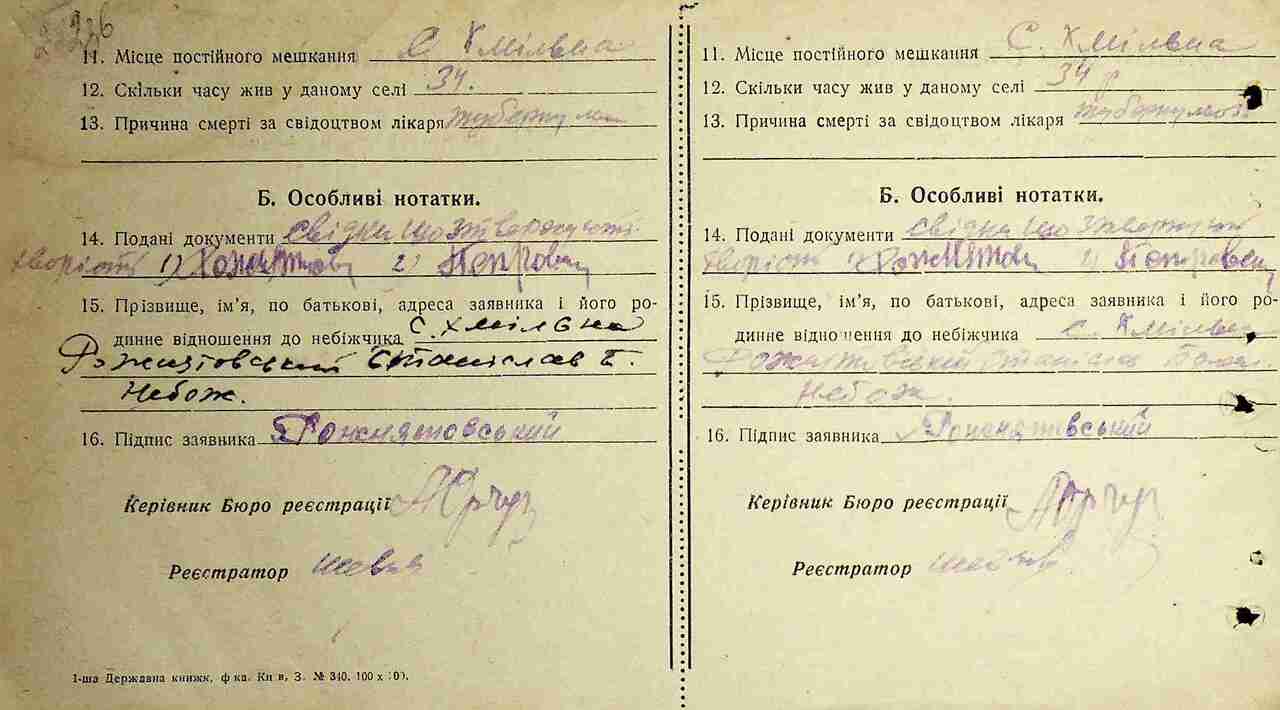 226
11. Місце постійного мешкання С. Хмільна
12. Скільки часу жив у даному селі 34.
13. Причина смерті за свідоцтвом лікаря туберкульоз
Б. Особливі нотатки.
14. Подані документи свідки що
1) 2)
15. Прізвище, ім'я, по батькові, адреса заявника і його ро-
динне відношення до небіжчика С. Хмільна
Рожнятовський Станіслав Б.
Небож.
16. Підпис заявника Рожнятовський
Керівник Бюро реєстрації
Реєстратор
1-ша Державна книжк. ф-ка. Київ, З. № 340. 100 х
11. Місце постійного мешкання С. Хмільна
12. Скільки часу жив у даному селі 34 р
13. Причина смерті за свідоцтвом лікаря туберкульоз
Б. Особливі нотатки.
14. Подані документи свідки що
1) 2)
15. Прізвище, ім'я, по батькові, адреса заявника і його ро-
динне відношення до небіжчика С. Хмільна
Рожнятовський Станіслав
Небож.
16. Підпис заявника Рожнятовський
Керівник Бюро реєстрації
Реєстратор